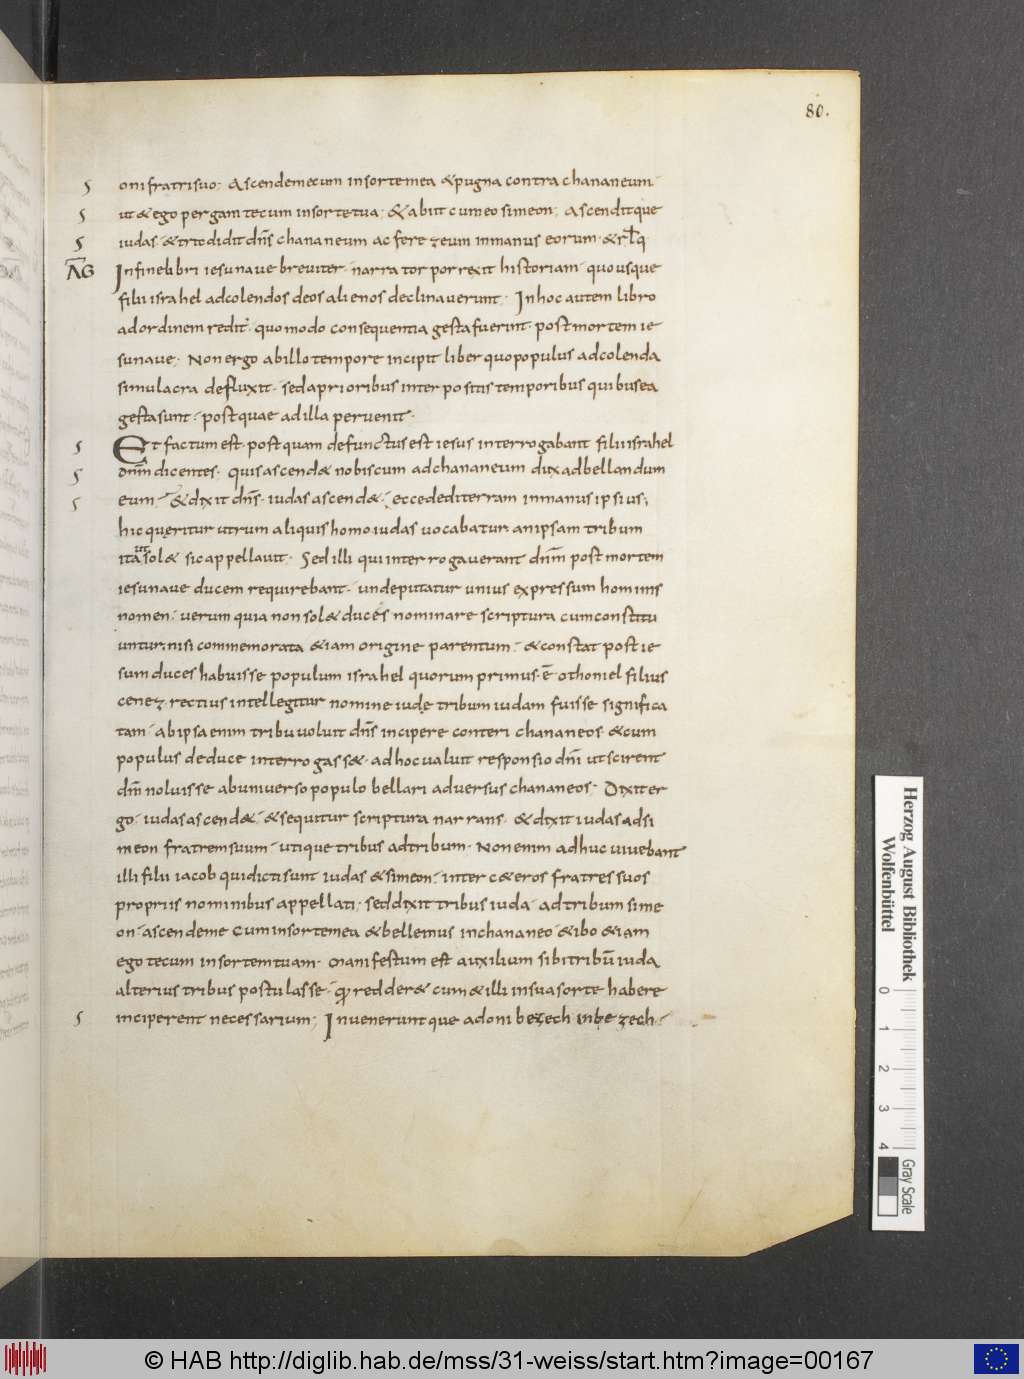 80.
ς onifratrisuo; Ascendemecum insortemea &pugna contra chananeum
ς ut & ego pergam tecum insortetua; &abiit cumeo simeon; Ascenditque
ς iudas · &tradidit dn̄s chananeum ac ferezeum inmanus eorum · & rłq
AG Infinelibri iesunaue breuiter · narrator porrexit historiam · quousque
filii israhel adcolendos deos alienos declinauerunt · Inhoc autem libro
adordinem redit · quomodo consequentia gesta fuerint · postmortem ie
sunaue · Non ergo abillo tempore incipit liber quo populus adcolenda
simulacra defluxit · sed aprioribus interpositis temporibus quibus ea
gesta sunt · post quae adilla peruenit ·
ς Et factum est · postquam defunctus est iesus interrogabant filii israhel
ς dnm̄ dicentes · quis ascend& nobiscum adchananeum dux adbellandum
ς eum · &dixit dn̄s · iudas ascend& · ecce dediterram inmanus ipsius;
hic queritur utrum aliquis homo iudas uocabatur · an ipsam tribum
ita ut sol& sic appellauit · Sed illi qui interrogauerant dnm̄ post mortem
iesunaue ducem requirebant · unde putatur unius expressum hominis
nomen · uerum quia non sol& duces nominare scriptura cum constitu
untur · nisi commemorata &iam origine parentum · &constat post ie
sum duces habuisse populum israhel quorum primus · ē othoniel filius
cenez · rectius intellegitur nomine iudę tribum iudam fuisse significa
tam · abipsa enim tribu uoluit dn̄s incipere conteri chananeos · &cum
populus deduce interrogass& · adhoc ualuit responsio dn̄i ut scirent
dm̄ noluisse abuniuerso populo bellari aduersus chananeos · Dixit er
go · iudas ascend& · &sequitur scriptura narrans · &dixit iudas adsi
meon fratrem suum · utique tribus adtribum · Non enim adhuc uiuebant
illi filii iacob qui dicti sunt iudas &simeon · inter c&eros fratres suos
propriis nominibus appellati · sed dixit tribus iuda · adtribum sime
on · ascende me cum insortemea &bellemus inchananeo · &ibo &iam
ego tecum insortem tuam · Manifestum est auxilium sibi tribū iuda
alterius tribus postulasse · qd redder& cum &illi insua sorte habere
ς inciperent necessarium; Inuenerunt que adonibezech inbezech ·
Herzog August Bibliothek
Wolfenbüttel
0 1 2 3 4
Gray Scale
© HAB http://diglib.hab.de/mss/31-weiss/start.htm?image=00167